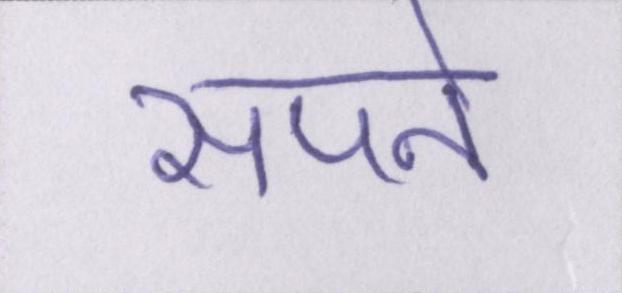 सपने